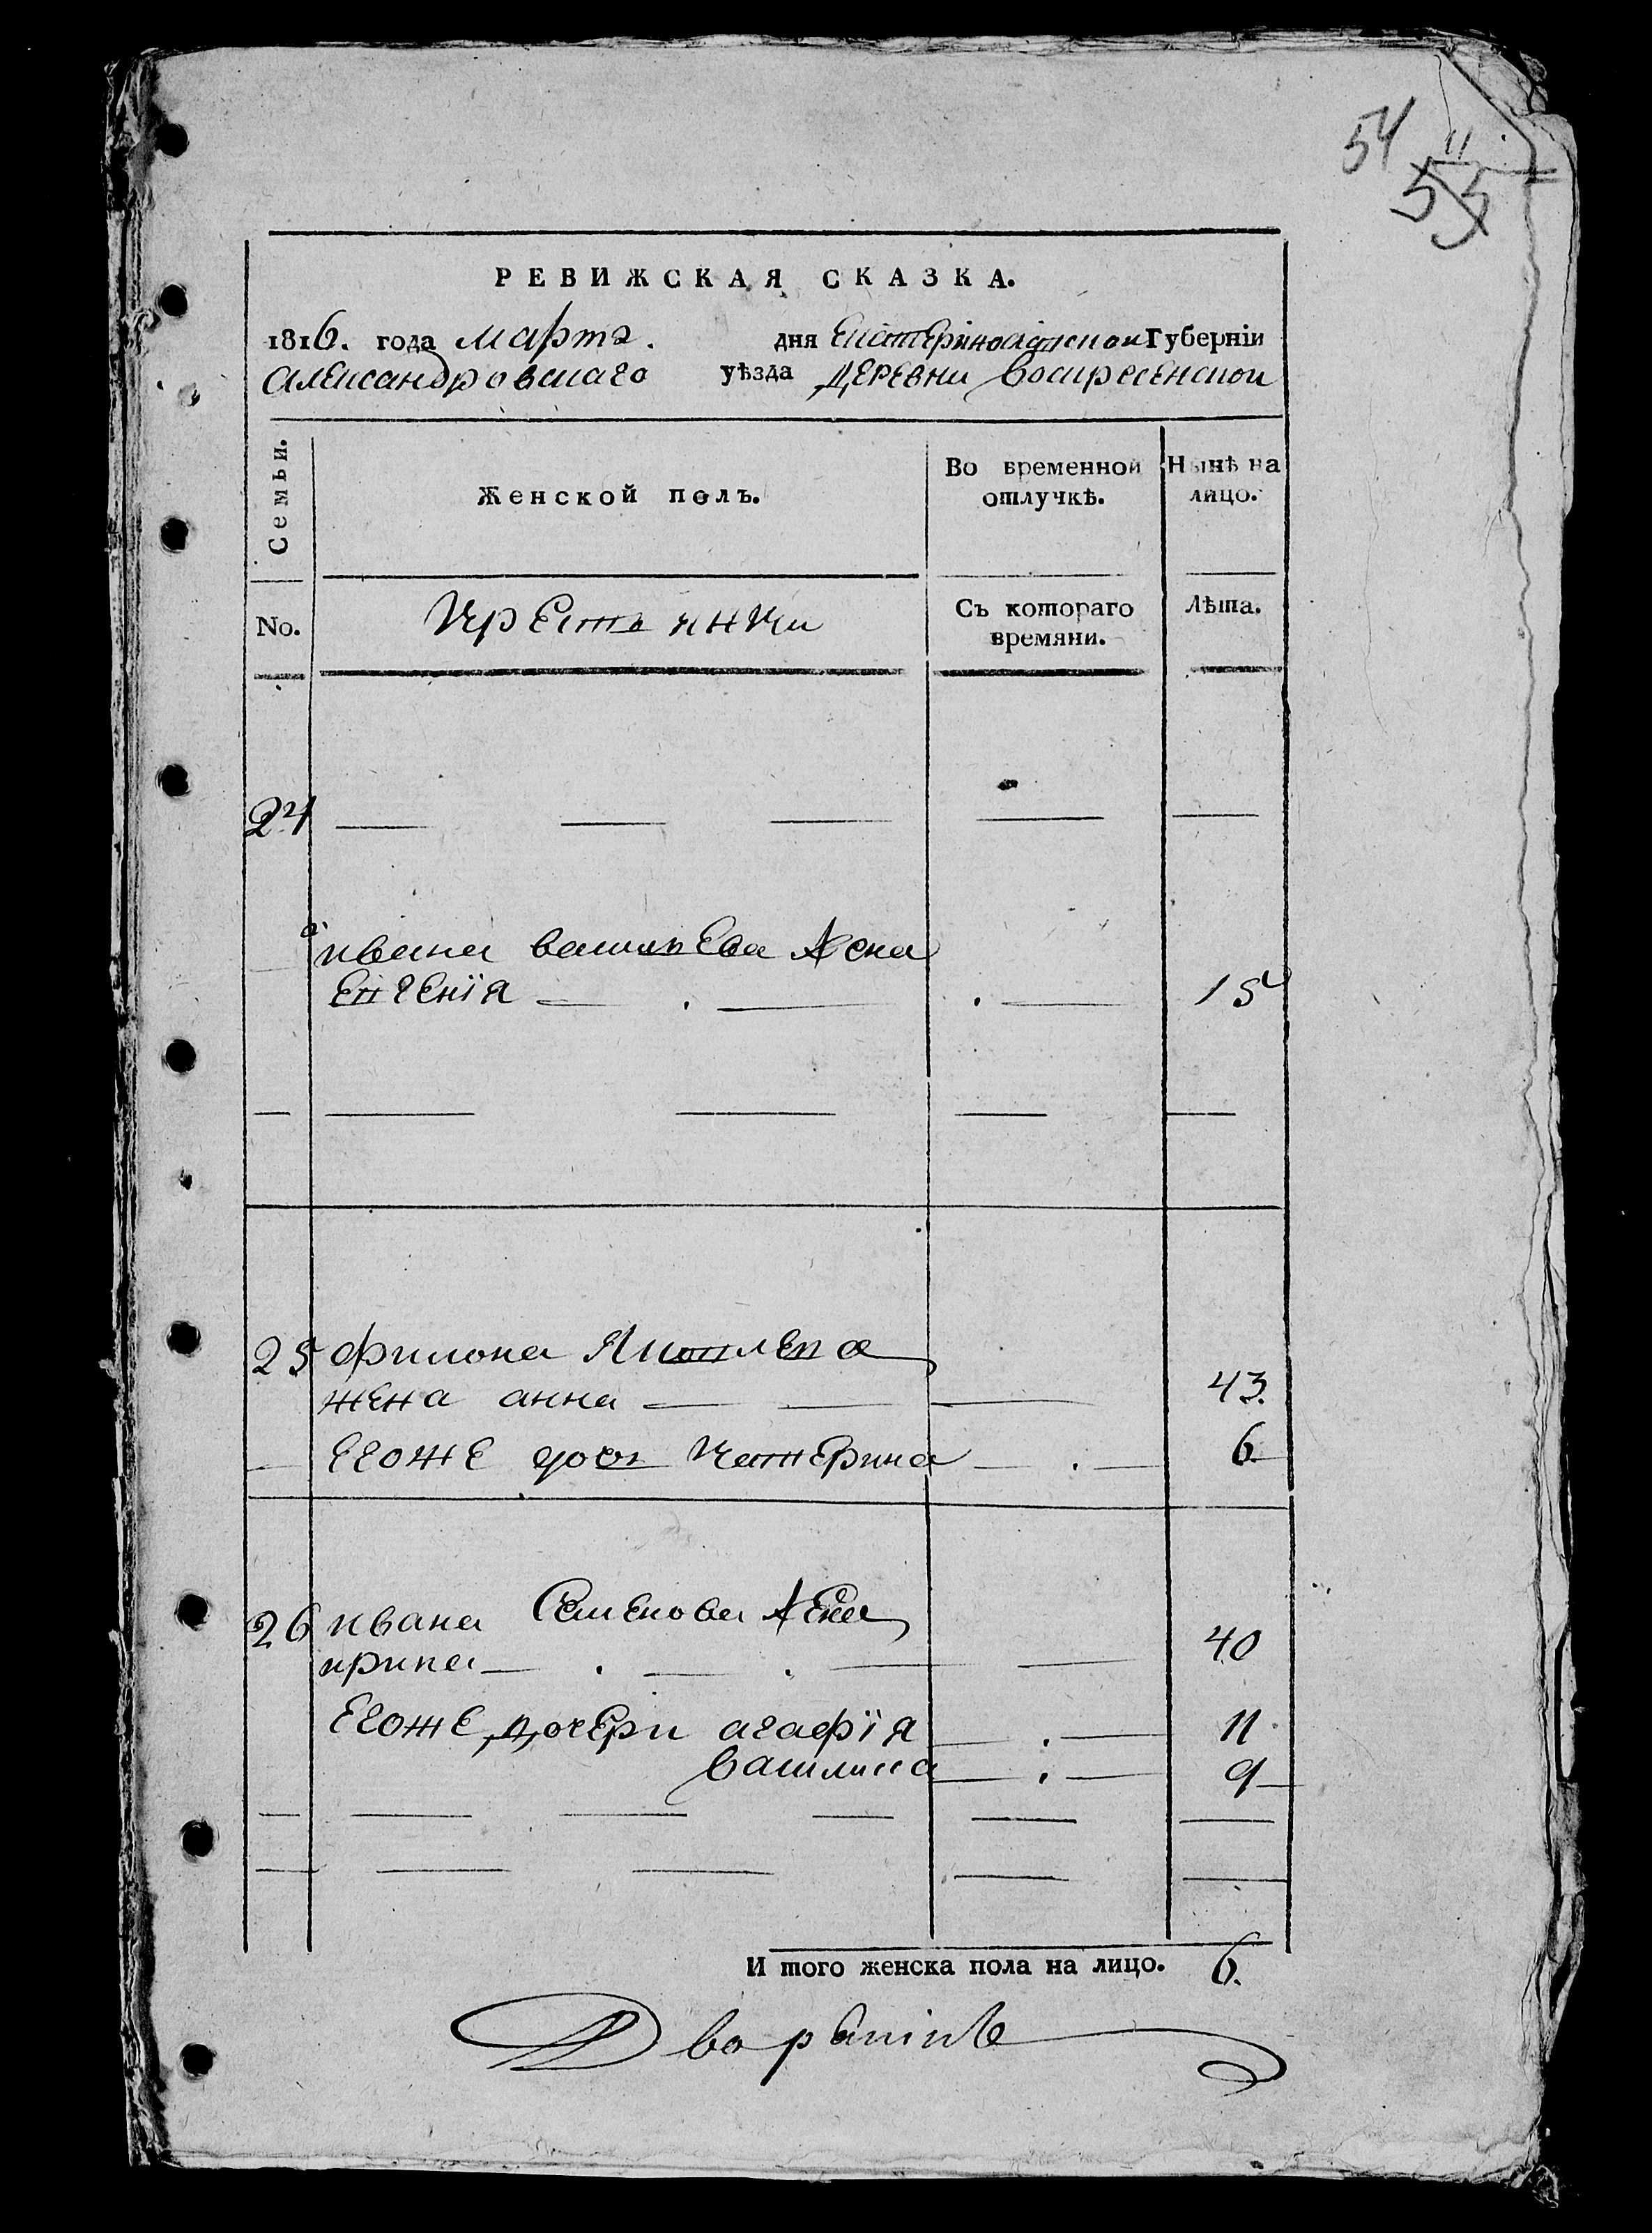 54
11
55
РЕВИЖСКАЯ СКАЗКА.
1816. года марта. дня Екатериносласкои Губерніи
александровскаго уѣзда деревни воскресенской
Семьи. Женской полъ. Во временной отлучкѣ. Нынѣ на лицо.
No. крестьянки Съ котораго времяни. Лѣта.
24
ивана васильева жена
Евгенїя 15
25 филона Яковлева
жена анна 43
егоже дочь катерина 6
26 ивана Семенова жена
ирина 40
егоже дочери агафїя 11
василиса 9
И того женска пола на лицо. 6.